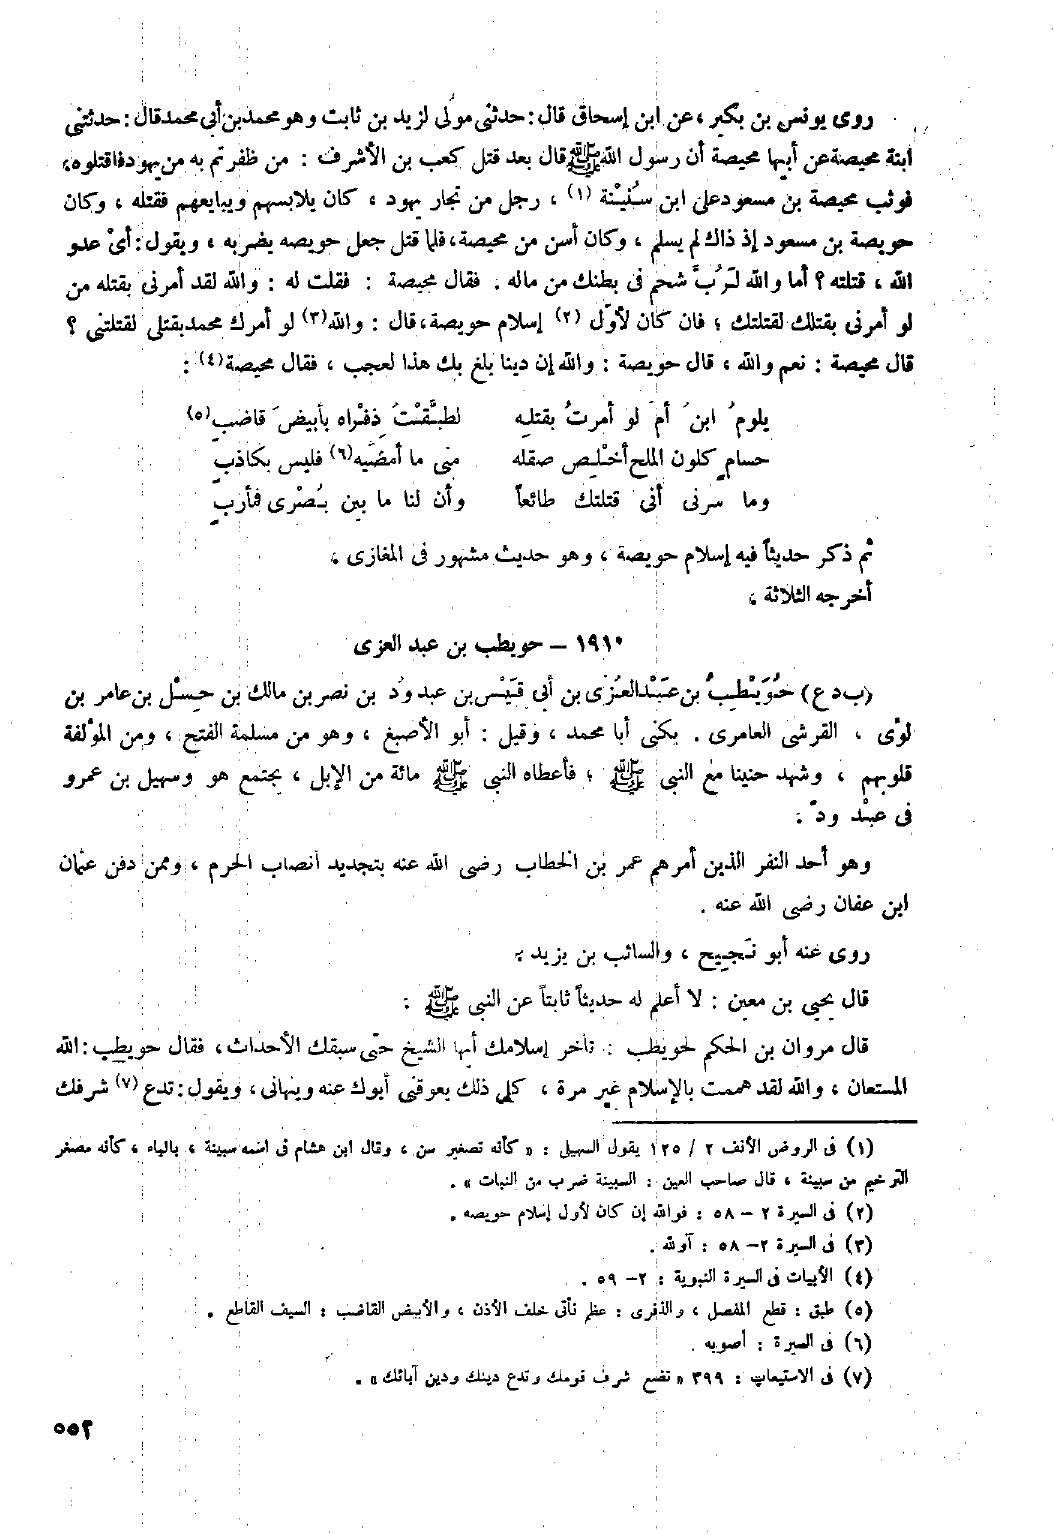 روى يونس بن بكير ، عن ابن إسحاق قال : حدثنى مولى لزيد بن ثابت وهو محمد بن أبى محمد قال : حدثتنى
ابنة محيصة عن أبيها محيصة أن رسول الله ﷺ قال بعد قتل كعب بن الأشرف : من ظفرتم به من يهود فاقتلوه ،
فوثب محيصة بن مسعود على ابن سُنَيْنة (١) ، رجل من تجار يهود ، كان يلابسهم ويبايعهم فقتله ، وكان
حويصة بن مسعود إذ ذاك لم يسلم ، وكان أسن من محيصة ، فلما قتل جعل حويصه يضربه ، ويقول : أىْ عدو
الله ، قتلته ؟ أما والله لَرُبَّ شحم فى بطنك من ماله . فقال محيصة : فقلت له : والله لقد أمرنى بقتله من
لو أمرنى بقتلك لقتلتك ؛ فان كان لأوّل (٢) إسلام حويصة ، قال : والله (٣) لو أمرك محمد بقتلى لقتلتنى ؟
قال محيصة : نعم والله ، قال حويصة : والله إن دينا بلغ بك هذا لعجب ، فقال محيصة (٤) :
يلومُ ابنُ أمّ لو أمرتُ بقتله لطبَّقْتُ ذِفْراه بأبيضَ قاضبِ (٥)
حسامٍ كلون الملح أخْلِص صقله متى ما أمضّيه (٦) فليس بكاذبِ
وما سرنى أنى قتلتك طائعاً وأن لنا ما بين بُصْرى فمأربِ
ثم ذكر حديثاً فيه إسلام حويصة ، وهو حديث مشهور فى المغازى .
أخرجه الثلاثة .
١٩١٠ – حويطب بن عبد العزى
(ب د ع) حُوَيْطِبُ بن عَبْد العُزّى بن أبى قَيْس بن عبد ودّ بن نصر بن مالك بن حِسْل بن عامر بن
لؤى ، القرشى العامرى . يكنى أبا محمد ، وقيل : أبو الأصبغ ، وهو من مسلمة الفتح ، ومن المؤلفة
قلوبهم ، وشهد حنينا مع النبى ﷺ ؛ فأعطاه النبى ﷺ مائة من الإبل ، يجتمع هو وسهيل بن عمرو
فى عبْد ودّ .
وهو أحد النفر الذين أمرهم عمر بن الخطاب رضى الله عنه بتجديد أنصاب الحرم ، وممن دفن عثمان
ابن عفان رضى الله عنه .
روى عنه أبو نَجِيح ، والسائب بن يزيد .
قال يحيى بن معين : لا أعلم له حديثاً ثابتاً عن النبى ﷺ .
قال مروان بن الحكم لحويطب : تأخر إسلامك أيها الشيخ حتى سبقك الأحداث ، فقال حويطب : الله
المستعان ، والله لقد هممت بالإسلام غير مرة ، كل ذلك يعوقنى أبوك عنه وينهانى ، ويقول : تدع (٧) شرفك
(١) فى الروض الأنف ٢ / ١٢٥ يقول السهيلى : « كأنه تصغير سن ، وقال ابن هشام فى اسمه سبينة ، بالباء ، كأنه مصغر
الترخيم من سبينة ، قال صاحب العين : السبينة ضرب من النبات » .
(٢) فى السيرة ٢ – ٥٨ : فوالله إن كان لأول إسلام حويصه .
(٣) فى السيرة ٢ – ٥٨ : آولله .
(٤) الأبيات فى السيرة النبوية : ٢ – ٥٩ .
(٥) طبق : قطع المفصل ، والذفرى : عظم ناتى خلف الأذن ، والأبيض القاضب : السيف القاطع .
(٦) فى السيرة : أصوبه .
(٧) فى الاستيعاب : ٣٩٩ « تضع شرف قومك وتدع دينك ودين آبائك » .
٥٥٢